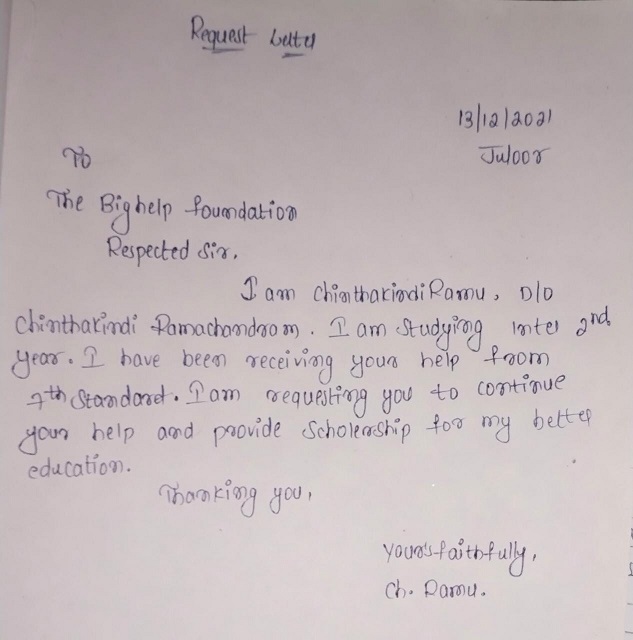 Request Letter
13/12/2021
Juloor
To
The Bighelp foundation
Respected Sir,
I am Chinthakindi Ramu, D/O
Chinthakindi Ramachandram. I am Studying Inter 2nd
year. I have been receiving your help from
7th Standard. I am requesting you to continue
your help and provide Scholership for my better
education.
Thanking you,
Yours faithfully,
Ch. Ramu.